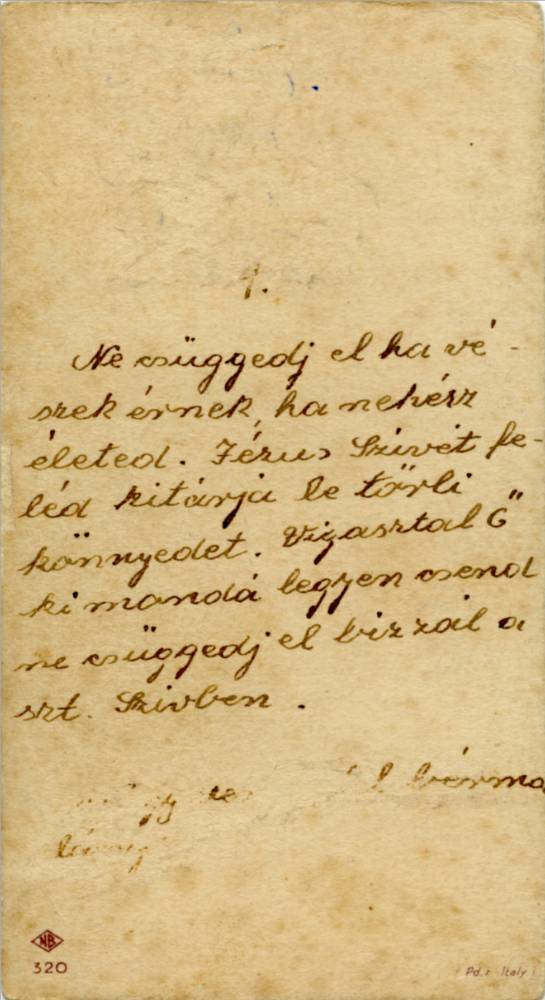 1.
Ne csüggedj el ha vé-
szek érnek, ha nehérz
életed. Jézus Szívét fe-
léd kitárja le törli
könnyedet. Vigasztal Ő
ki mondá legyen csend
ne csüggedj el bizzál a
szt. Szivben.
bérma
NB
320
Pd. r. Italy